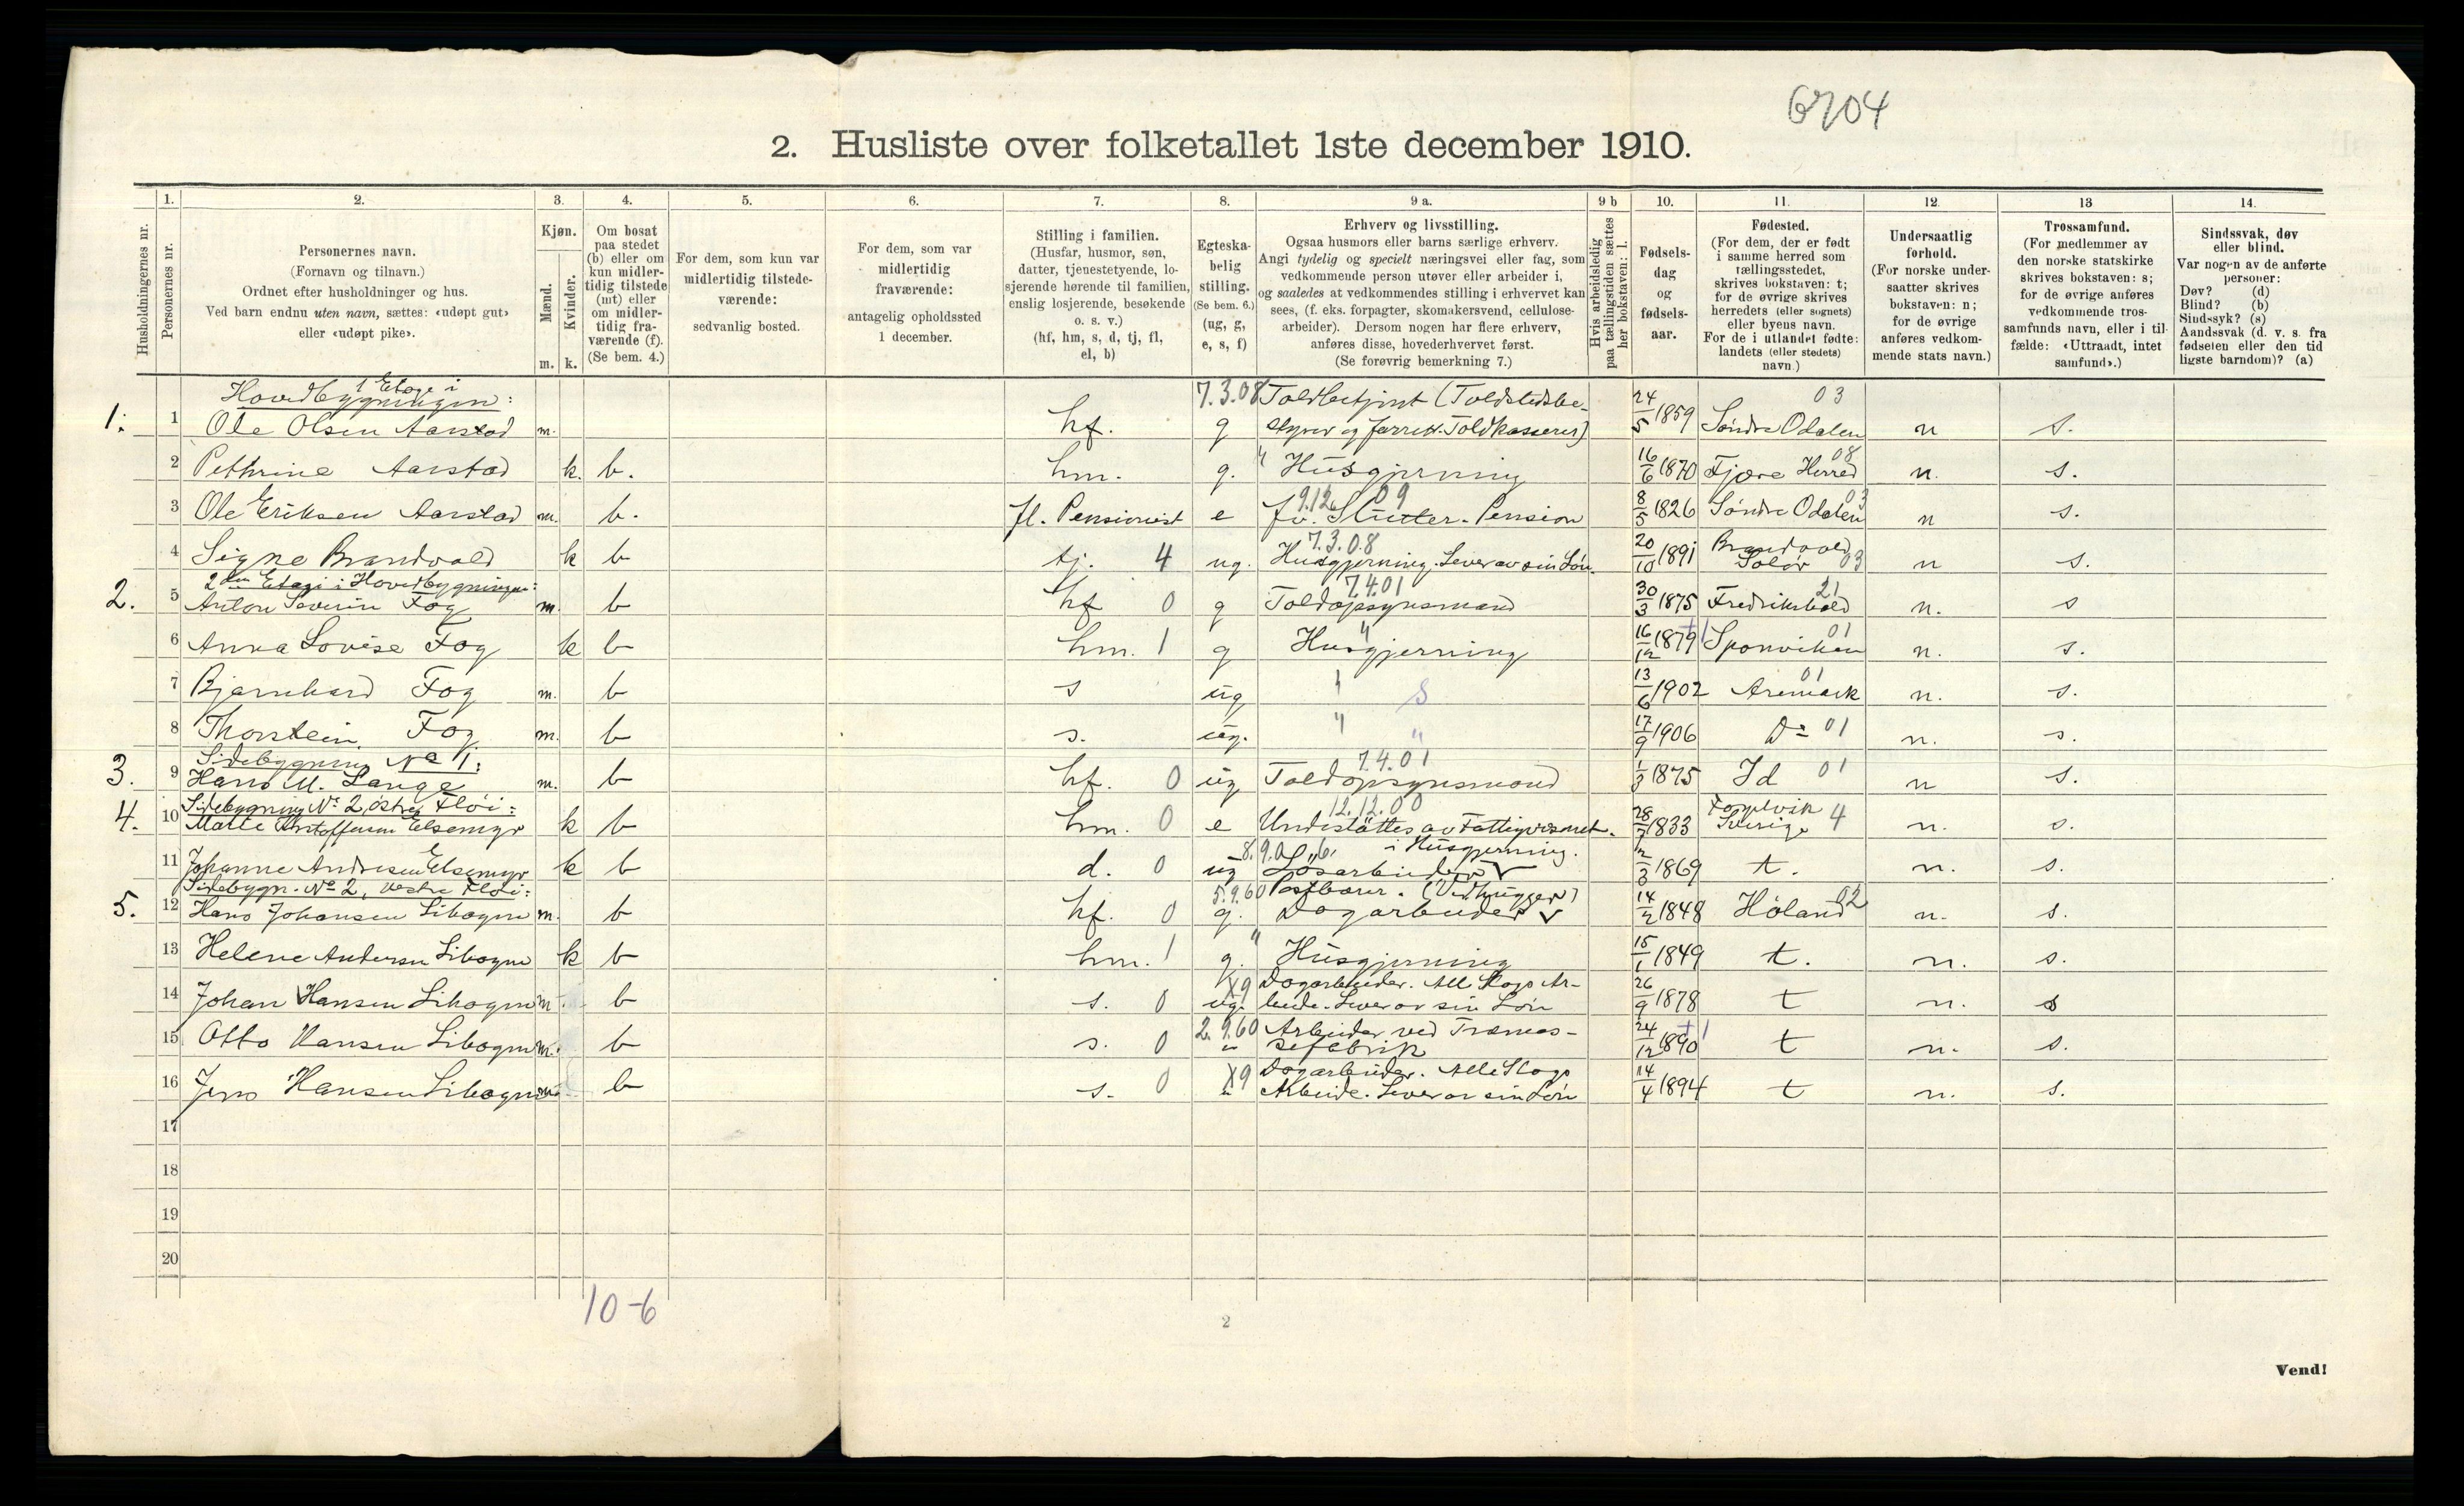 6704
2. Husliste over folketallet 1ste december 1910.
Husholdningernes nr.
1.
Personernes nr.
2.
Personernes navn.
(Fornavn og tilnavn.)
Ordnet efter husholdninger og hus.
Ved barn endnu uten navn, sættes: «udøpt gut»
eller «udøpt pike».
3.
Kjøn.
Mænd.
Kvinder.
m. k.
4.
Om bosat
paa stedet
(b) eller om
kun midler-
tidig tilstede
(mt) eller
om midler-
tidig fra-
værende (f).
(Se bem. 4.)
5.
For dem, som kun var
midlertidig tilstede-
værende:
sedvanlig bosted.
6.
For dem, som var
midlertidig
fraværende:
antagelig opholdssted
1 december.
7.
Stilling i familien.
(Husfar, husmor, søn,
datter, tjenestetyende, lo-
sjerende hørende til familien,
enslig losjerende, besøkende
o. s. v.)
(hf, hm, s, d, tj, fl,
el, b)
8.
Egteska-
belig
stilling.
(Se bem. 6.)
(ug, g,
e, s, f)
9 a.
Erhverv og livsstilling.
Ogsaa husmors eller barns særlige erhverv.
Angi tydelig og specielt næringsvei eller fag, som
vedkommende person utøver eller arbeider i,
og saaledes at vedkommendes stilling i erhvervet kan
sees, (f. eks. forpagter, skomakersvend, cellulose-
arbeider). Dersom nogen har flere erhverv,
anføres disse, hovederhvervet først.
(Se forøvrig bemerkning 7.)
9 b
Hvis arbeidsledig
paa tællingstiden sættes
her bokstaven: l.
10.
Fødsels-
dag
og
fødsels-
aar.
11.
Fødested.
(For dem, der er født
i samme herred som
tællingsstedet,
skrives bokstaven: t;
for de øvrige skrives
herredets (eller sognets)
eller byens navn.
For de i utlandet fødte:
landets (eller stedets)
navn.)
12.
Undersaatlig
forhold.
(For norske under-
saatter skrives
bokstaven: n;
for de øvrige
anføres vedkom-
mende stats navn.)
13
Trossamfund.
(For medlemmer av
den norske statskirke
skrives bokstaven: s;
for de øvrige anføres
vedkommende tros-
samfunds navn, eller i til-
fælde: «Uttraadt, intet
samfund».)
14.
Sindssvak, døv
eller blind.
Var nogen av de anførte
personer:
Døv? (d)
Blind? (b)
Sindssyk? (s)
Aandssvak (d. v. s. fra
fødselen eller den tid-
ligste barndom)? (a)
1 Etage i
Hovedbygningen:
7.3.08 Toldbetjent (Toldstedsbe- 03
1. 1 Ole Olsen Aarstad m. hf. g styrer og forrett. Toldkasserer) 24/5 1859 Søndre Odalen n s.
2 Pethrine Aarstad k. b. hm. g. " Husgjerning 16/6 1870 Fjære Herred 08 n. s.
9.12.09
3 Ole Eriksen Aarstad m. b. fl. Pensionist e fv. Slutter. Pension 8/5 1826 Søndre Odalen 03 n s.
7.3.08 Brandvold
4 Signe Brandvold k b tj. 4 ug. Husgjerning. Lever av sin Løn. 20/10 1891 Solør 03 n s.
2den Etage i Hovedbygningen: 7.4.01 21
2. 5 Anton Severin Fog m. b hf 0 g Toldopsynsmand 30/3 1875 Fredrikshald n. s
6 Anna Lovise Fog k b hm. 1 g " Husgjerning 16/12 1879 +1 Sponviken 01 n. s.
7 Bjarnhard Fog m. b s ug " S 13/6 1902 Aremark 01 n. s.
8 Thorstein Fog m. b s. ug. " " 17/9 1906 Do 01 n. s.
Sidebygning No 1: 7.4.01
3. 9 Hans M. Lange m. b hf. 0 ug Toldopsynsmand 1/3 1875 Id 01 n s.
Sidebygning No 2, østre Fløi: 12.12.00
4. 10 Marte Kristoffersen Elsemyr k b hm. 0 e Understøttes av Fattigvæsnet. 28/7 1833 Sverige 4 n. s.
8.9.0 i Husgjerning.
11 Johanne Andersen Elsemyr k b d. 0 ug Løsarbeider v 1869 t. n. s.
Sidebygn. No 2, vestre Fløi: 5.9.60 Postbærer. (Vedhugger)
5. 12 Hans Johansen Libogen m. b hf. 0 g. Dagarbeider v 14/2 1848 Høland 02 n. s.
13 Helene Andersen Libogen k b hm. 1 g. " Husgjerning 15/1 1849 t. n. s.
X9 Dagarbeider. All Slags Ar-
14 Johan Hansen Libogen m b s. 0 ug. beide. Lever av sin Løn 26/9 1878 t n. s
2.9.60 Arbeider ved Træmas-
15 Otto Hansen Libogen m. b s. 0 " sefabrik 24/12 1890 +1 t n. s.
X9 Dagarbeider. Alle Slags
16 Jens Hansen Libogen m b s. 0 " Arbeide. Lever av sin Løn 14/4 1894 t n. s.
17
18
19
20
10-6
2
Vend!